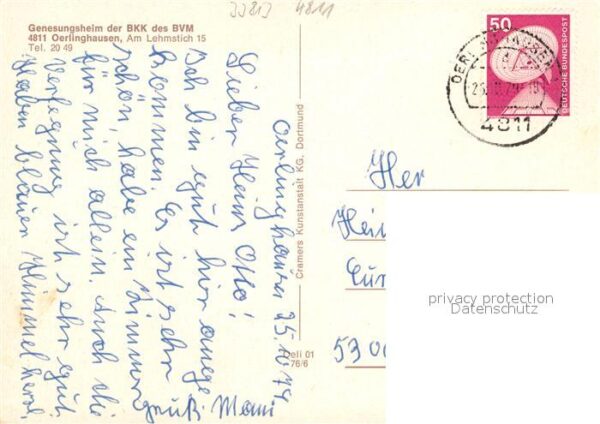 33813 4811
Genesungsheim der BKK des BVM
4811 Oerlinghausen, Am Lehmstich 15
Tel. 20 49
Oerlinghausen 25.10.79
Lieber Heinz Otto!
Ich bin gut hier ange
kommen. Es ist sehr
schön, habe ein Zimmer
für mich allein. Auch die
Verfegung ist sehr gut
Haben blauen Himmel
gruß. Mami
Cramers Kunstanstalt KG. Dortmund
Oeli 01
76/6
50
DEUTSCHE BUNDESPOST
OERLINGHAUSEN
4811
Her
Hei
53 00
privacy protection
Datenschutz